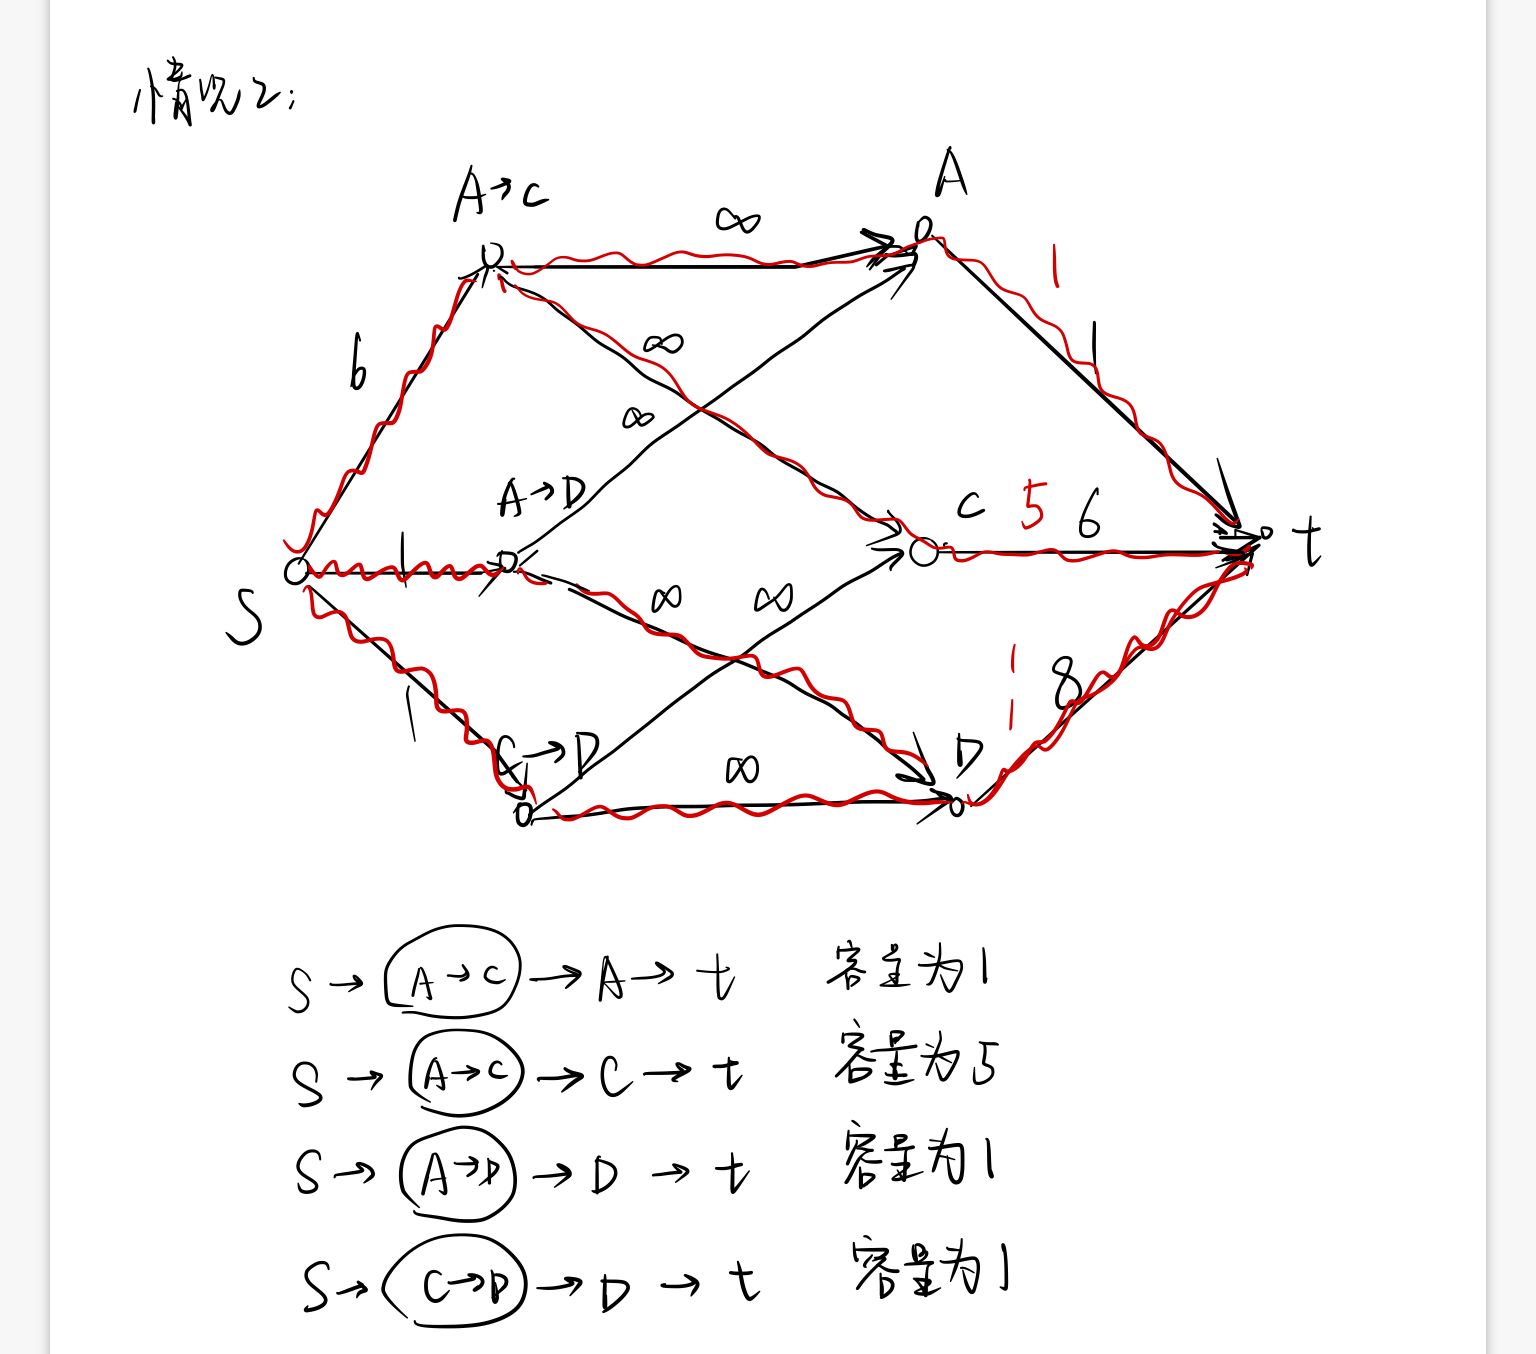 情况2:
A
A→C
∞
1
6
∞
1
∞
A→D
C 5 6
t
1
∞ ∞
S
1
8
1
1
C→D
D
∞
S→A→C→A→t 容量为1
S→A→C→C→t 容量为5
S→A→D→D→t 容量为1
S→C→D→D→t 容量为1